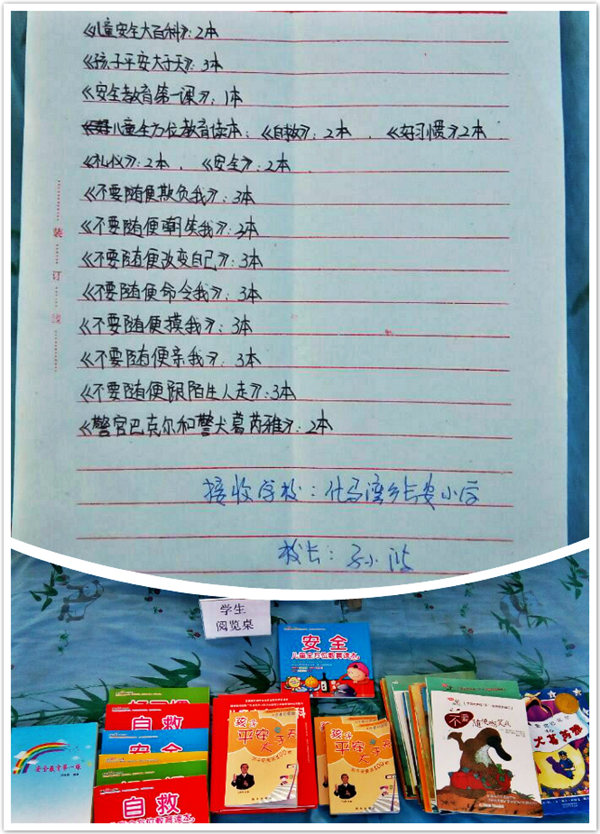 《儿童安全大百科》：2本
《孩子平安大于天》：3本
《安全教育第一课》：1本
儿童全方位教育读本：《自救》：2本、《好习惯》2本
《礼仪》：2本、《安全》：2本
《不要随便欺负我》：3本
《不要随便嘲笑我》：2本
《不要随便改变自己》：3本
《不要随便命令我》：3本
《不要随便摸我》：3本
《不要随便亲我》：3本
《不要随便跟陌生人走》：3本
《警官巴克尔和警犬葛芮雅》：2本
装订线
接收学校：什马湾乡长安小学
校长：
学生
阅览桌
安全
儿童全方位教育读本
自救
安全
自救
儿童全方位教育读本
安全教育第一课
孩子
平安
大于天
孩子
平安
大于天
不要
随便嘲笑我